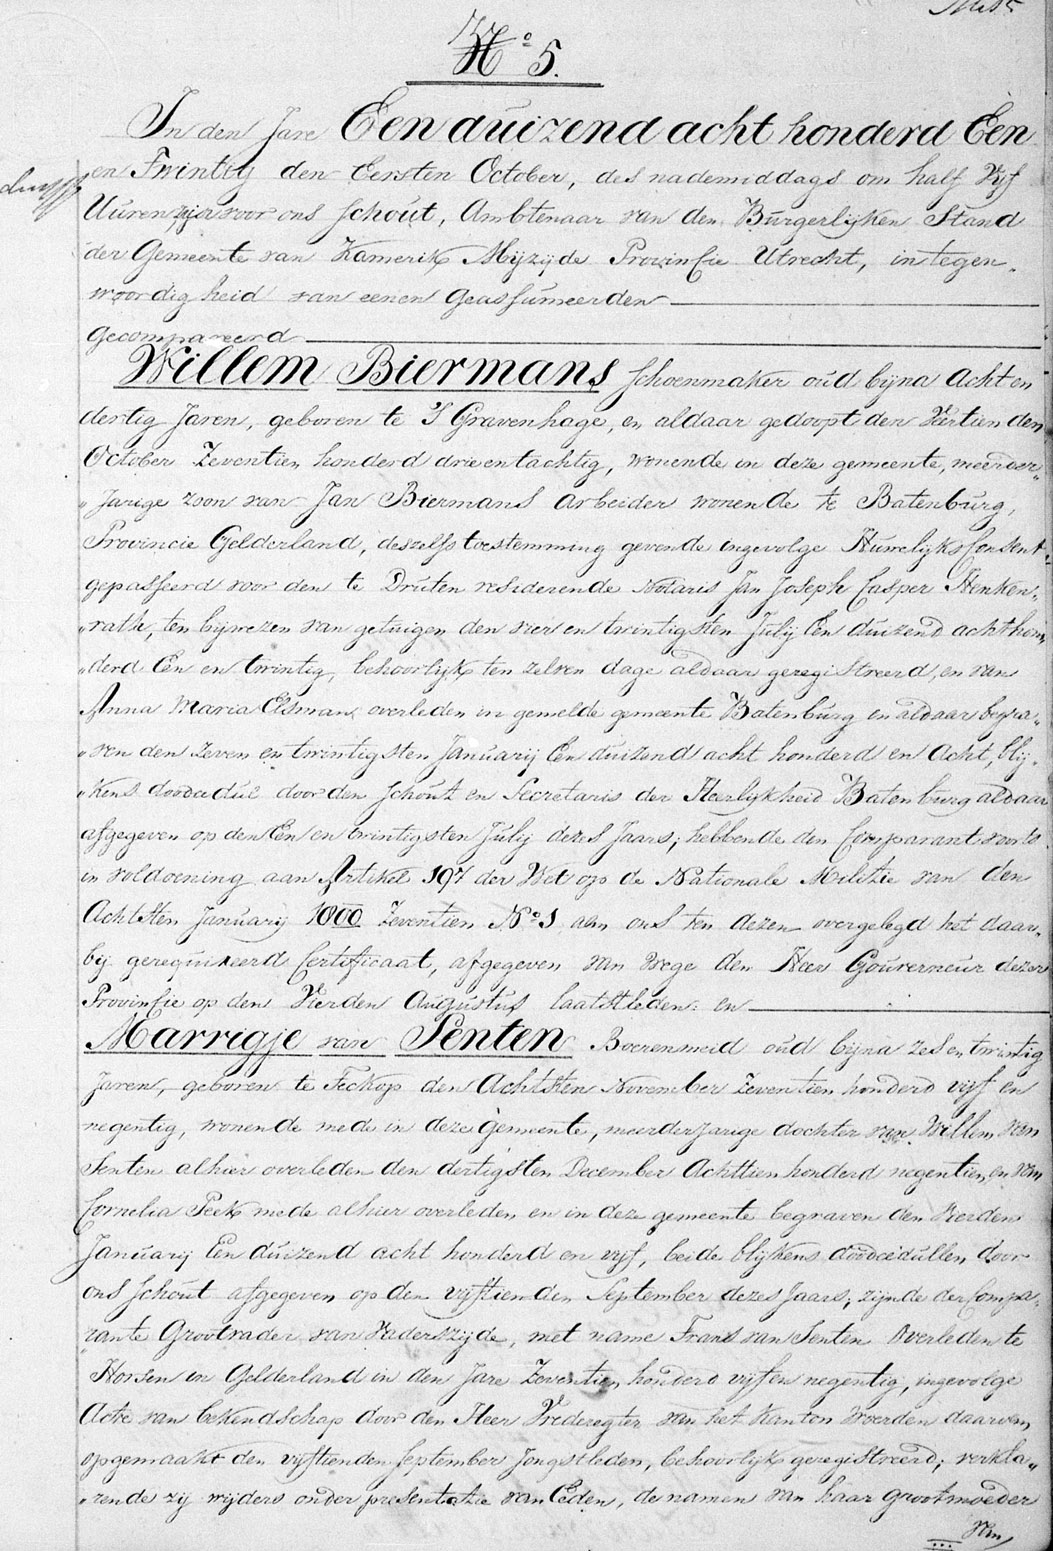 No 5.
In den Jare Een duizend acht honderd Een
en Twintig den Eersten October, des nademiddags om half Vijf
Uuren zijn voor ons Schout, Ambtenaar van den Burgerlijken Stand
der Gemeente van Kamerik Mijzijde Provinsie Utrecht, in tegen-
woordigheid van eenen Geassumeerden
Gecompareerd
Willem Biermans Schoenmaker oud bijna Acht en
dertig Jaren, geboren te S Gravenhage, en aldaar gedoopt den Viertienden
October Zeventien honderd drie en tachtig, wonende in deze gemeente, meerder-
"Jarige zoon van Jan Biermans Arbeider wonende te Batenburg,
Provincie Gelderland, deszelfs toestemming gevende ingevolge Huwelijks Consent
gepasseerd voor den te Druten residerende Notaris Jan Joseph Casper Henken-
"rath, ten bijwezen van getuigen den vier en twintigsten Julij Een duizend acht hon
"derd Een en twintig, behoorlijk ten zelven dage aldaar geregistreerd, en van
Anna Maria Elsman, overleden in gemelde gemeente Batenburg en aldaar begra-
"ven den Zeven en twintigsten Januarij Een duizend acht honderd en Acht, blij-
"kens doodcedul door den Schout en Secretaris der Heerlijkheid Batenburg aldaar
afgegeven op den Een en twintigsten Julij dezes Jaars; hebbende den Comparant voorts
in voldoening aan Artikel 197 der Wet op de Nationale Militie van den
Achtsten Januarij 1800 Zeventien No 1 aan ons ten dezen overgelegd het daar-
bij gerequireerd Certificaat, afgegeven van wege den Heer Gouverneur dezer
Provinsie op den Vierden Augustus laatstleden: en
Marrigje van Senten Boerenmeid oud bijna zes en twintig
Jaren, geboren te Teckop den Achtsten November Zeventien honderd vijf en
negentig, wonende mede in deze gemeente, meerderjarige dochter van Willem van
Senten alhier overleden den dertigsten December Achttien honderd negentien, en van
Cornelia Peek mede alhier overleden, en in deze gemeente begraven den Vierden
Januarij Een duizend acht honderd en vijf, beide blijkens doodcedullen door
ons Schout afgegeven op den vijftienden September dezes Jaars; zijnde der Compa-
rante Grootvader van Vaderszijde, met name Frans van Senten Overleden te
Horsen in Gelderland in den Jare Zeventien honderd vijf en negentig, ingevolge
Acte van bekendschap door den Heer Vrederegter van het Kanton Woerden daarvan
opgemaakt den vijftienden September Jongstleden, behoorlijk geregistreerd; verkla-
"rende zij wijders onder presentatie van Eeden, de namen van haar grootmoeder
van